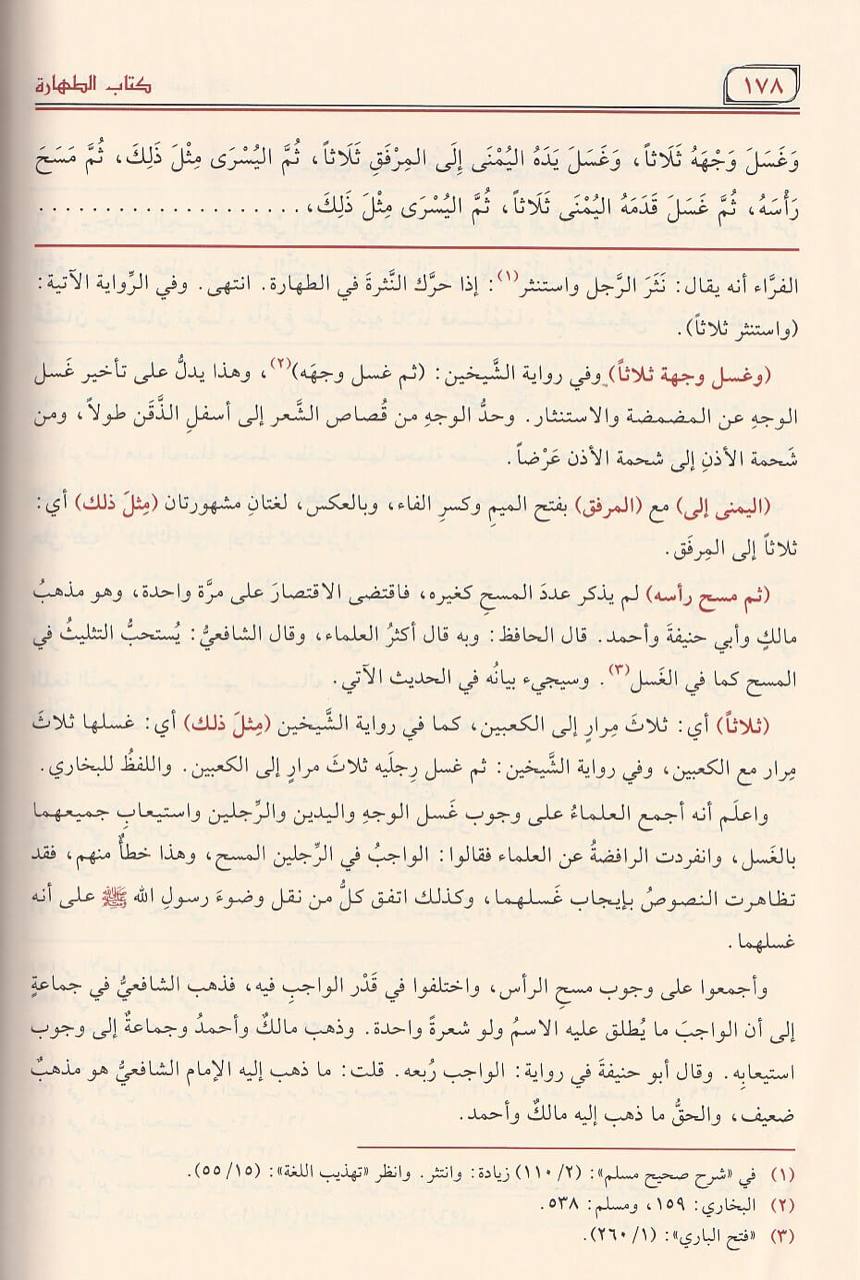 ١٧٨
كتاب الطهارة
وَغَسَلَ وَجْهَهُ ثَلَاثاً، وَغَسَلَ يَدَهُ اليُمْنَى إِلَى المِرْفَقِ ثَلَاثاً، ثُمَّ اليُسْرَى مِثْلَ ذَلِكَ، ثُمَّ مَسَحَ
رَأْسَهُ، ثُمَّ غَسَلَ قَدَمَهُ اليُمْنَى ثَلَاثاً، ثُمَّ اليُسْرَى مِثْلَ ذَلِكَ، . . . . . . . . . . . . . . . . . . . .
الفرَّاء أنه يقال: نَثَرَ الرَّجل واستنثر(١): إذا حرَّك النَّثرةَ في الطهارة. انتهى. وفي الرِّواية الآتية:
(واستنثر ثلاثاً).
(وغسل وجهة ثلاثاً) وفي رواية الشَّيخين: (ثم غسل وجهَه)(٢)، وهذا يدلُّ على تأخير غَسل
الوجهِ عن المضمضة والاستنثار. وحدُّ الوجهِ من قُصاص الشَّعر إلى أسفلِ الذَّقَن طولاً، ومن
شَحمة الأذنِ إلى شحمة الأذن عَرْضاً.
(اليمنى إلى) مع (المرفق) بفتح الميمِ وكسرِ الفاء، وبالعكس، لغتانِ مشهورتان (مِثلَ ذلك) أي:
ثلاثاً إلى المِرفَق.
(ثم مسح رأسه) لم يذكر عددَ المسحِ كغيره، فاقتضى الاقتصارَ على مرَّة واحدة، وهو مذهبُ
مالكٍ وأبي حنيفةَ وأحمد. قال الحافظ: وبه قال أكثرُ العلماء، وقال الشافعيُّ: يُستحبُّ التثليثُ في
المسح كما في الغَسل(٣). وسيجيء بيانُه في الحديث الآتي.
(ثلاثاً) أي: ثلاثَ مِرارٍ إلى الكعبين، كما في رواية الشَّيخين (مِثلَ ذلك) أي: غسلها ثلاثَ
مِرار مع الكعبين، وفي رواية الشَّيخين: ثم غسل رِجلَيه ثلاثَ مرارٍ إلى الكعبين. واللفظُ للبخاري.
واعلَم أنه أجمع العلماءُ على وجوب غَسل الوجهِ واليدين والرِّجلين واستيعابِ جميعهما
بالغَسل، وانفردت الرافضةُ عن العلماء فقالوا: الواجبُ في الرِّجلين المسح، وهذا خطأٌ منهم، فقد
تظاهرت النصوصُ بإيجاب غَسلهما، وكذلك اتفق كلُّ من نقل وضوءَ رسولِ الله ﷺ على أنه
غسلهما.
وأجمعوا على وجوب مسحِ الرأس، واختلفوا في قَدْر الواجبِ فيه، فذهب الشافعيُّ في جماعةٍ
إلى أن الواجبَ ما يُطلق عليه الاسمُ ولو شعرةً واحدة. وذهب مالكٌ وأحمدُ وجماعةٌ إلى وجوب
استيعابِه. وقال أبو حنيفةَ في رواية: الواجب رُبعه. قلت: ما ذهب إليه الإمام الشافعيُّ هو مذهبٌ
ضعيف، والحقُّ ما ذهب إليه مالكٌ وأحمد.
(١) في «شرح صحيح مسلم»: (٢/ ١١٠) زيادة: وانتثر. وانظر «تهذيب اللغة»: (١٥/ ٥٥).
(٢) البخاري: ١٥٩، ومسلم: ٥٣٨.
(٣) «فتح الباري»: (١/ ٢٦٠).